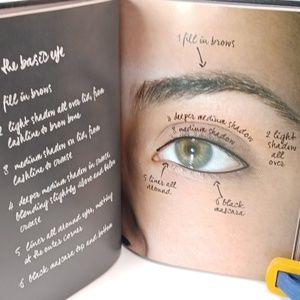 the basic eye
1 fill in brows
2 light shadow all over lid, from
lashline to brow bone
3 medium shadow on lid, from
lashline to crease
4 deeper medium shadow in crease,
blending slightly above and below
crease
5 liner all around eyes, meeting
at the outer corner
6 black mascara top and bottom
1 fill in brows
4 deeper medium shadow
3 medium shadow
2 light
shadow
all
over
5 liner all
around
6 black
mascara